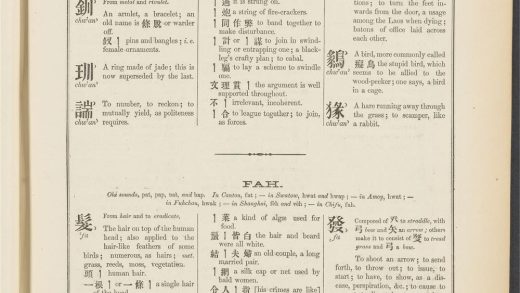 釧
From metal and rivulet.
An armlet, a bracelet; an
old name is 條脫 or warder
off.
釵 | pins and bangles; i.e.
female ornaments.
玔
A ring made of jade; this is
now superseded by the last.
chw‘an’
To number, to reckon; to
mutually yield, as politeness
requires.
chw‘an’
it is strung on.
a string of fire-crackers.
同作弊 to band together to
make disturbance.
計 | 謀 to join in swind-
ling or entrapping one; a black-
leg's crafty plan; to cabal.
| 騙 to lay a scheme to swindle
one.
文理貫 | the argument is well
supported throughout.
不 | irrelevant, incoherent.
| 合 to league together; to join,
as forces.
tions; to turn the feet in-
wards from the door, a usage
among the Laos when dying;
batons of office laid across
each other.
A bird, more commonly called
癡鳥 the stupid bird, which
seems to be allied to the
wood-pecker; one says, a bird
in a cage.
chw‘an’
A hare running away through
the grass; to scamper, like
a rabbit.
chw‘an’
FAH.
Old sounds, pat, pap, bat, and bap. In Canton, fat; — in Swatow, hwat and hwap; — in Amoy, hwat; —
in Fuhchau, hwak; — in Shanghai, feh and veh; — in Chifu, fah.
髮
From hair and to eradicate.
The hair on top of the human
head; also applied to the
hair-like feathers of some
birds; numerous, as hairs; met.
grass, reeds, moss, vegetation.
頭 | human hair.
一根 | or 一條 | a single hair
of the head.
| 菜 a kind of algæ used for
food.
鬚 | 皆白 the hair and beard
were all white.
結 | 夫婦 an old couple, a long
married pair.
| 網 a silk cap or net used by
bald women.
[this crimes are like]
發
Composed of 癶 to straddle, with
弓 bow and 矢 an arrow; others
make it to consist of 癹 to tread
grass and 弓 a bow.
To shoot an arrow; to send
forth, to throw out; to issue, to
start; to have, to show, as a dis-
ease, perspiration, &c.; to cause to